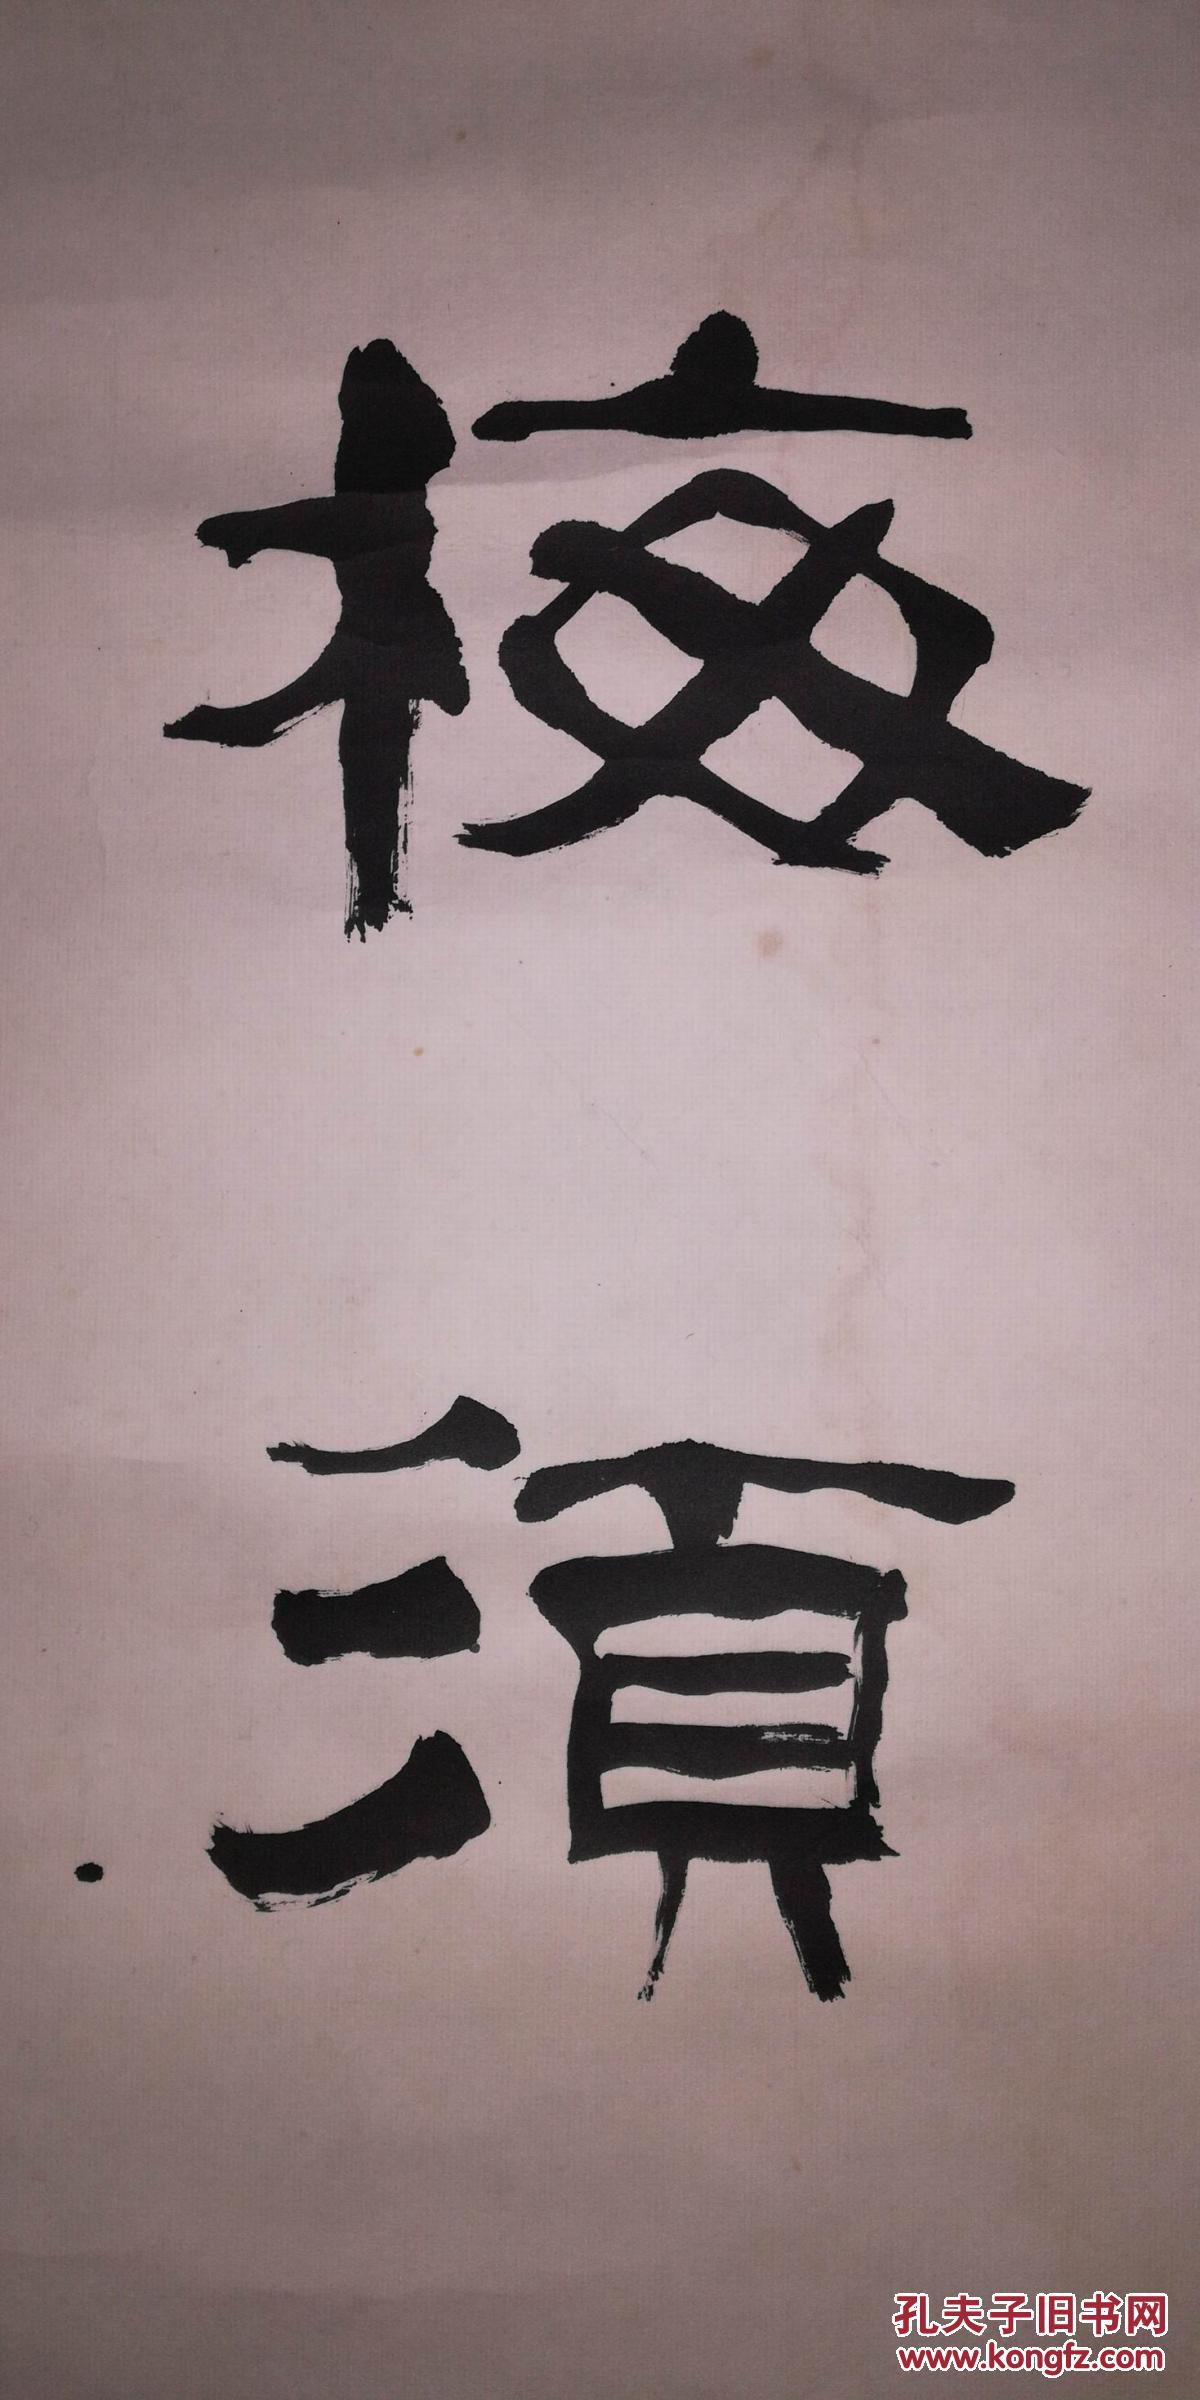 校
須
孔夫子旧书网
www.kongfz.com